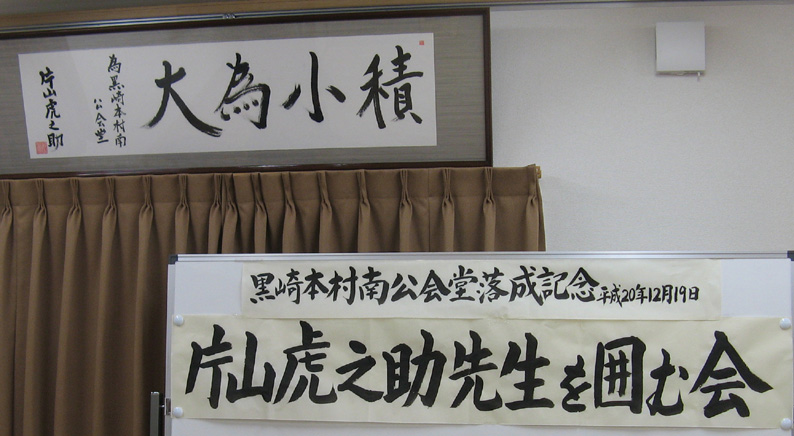 積小為大
為黒崎本村南
公会堂
片山虎之助
黒崎本村南公会堂落成記念 平成20年12月19日
片山虎之助先生を囲む会